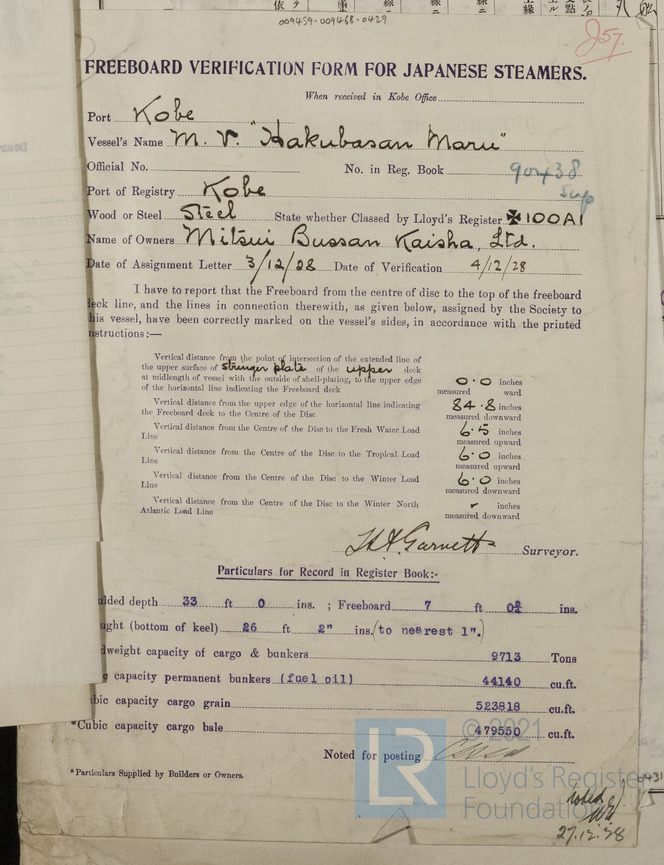 009459-009468-0429
257.
FREEBOARD VERIFICATION FORM FOR JAPANESE STEAMERS.
When received in Kobe Office
Port Kobe
Vessel's Name M. V. "Hakubasan Maru"
Official No. No. in Reg. Book 90438
Sup
Port of Registry Kobe
Wood or Steel Steel State whether Classed by Lloyd's Register ✠100A1
Name of Owners Mitsui Bussan Kaisha, Ltd.
Date of Assignment Letter 3/12/28 Date of Verification 4/12/28
I have to report that the Freeboard from the centre of disc to the top of the freeboard
deck line, and the lines in connection therewith, as given below, assigned by the Society to
his vessel, have been correctly marked on the vessel's sides, in accordance with the printed
nstructions:—
Vertical distance from the point of intersection of the extended line of
the upper surface of stringer plate of the upper deck
at midlength of vessel with the outside of shell-plating, to the upper edge
of the horizontal line indicating the Freeboard deck
0.0 inches
measured ward
Vertical distance from the upper edge of the horizontal line indicating
the Freeboard deck to the Centre of the Disc
84.8 inches
measured downward
Vertical distance from the Centre of the Disc to the Fresh Water Load
Line
6.5 inches
measured upward
Vertical distance from the Centre of the Disc to the Tropical Load
Line
6.0 inches
measured upward
Vertical distance from the Centre of the Disc to the Winter Load
Line
6.0 inches
measured downward
Vertical distance from the Centre of the Disc to the Winter North
Atlantic Load Line
- inches
measured downward
Garnett Surveyor.
Particulars for Record in Register Book:-
ulded depth 33 ft 0 ins. ; Freeboard 7 ft 0¾ ins.
ught (bottom of keel) 26 ft 2" ins. (to nearest 1".)
dweight capacity of cargo & bunkers 9713 Tons
c capacity permanent bunkers (fuel oil) 44140 cu.ft.
bic capacity cargo grain 523818 cu.ft.
*Cubic capacity cargo bale 479550 cu.ft.
Noted for posting
*Particulars Supplied by Builders or Owners.
LR
© 2021
Lloyd's Register
Foundation
noted
27.12.28
0431